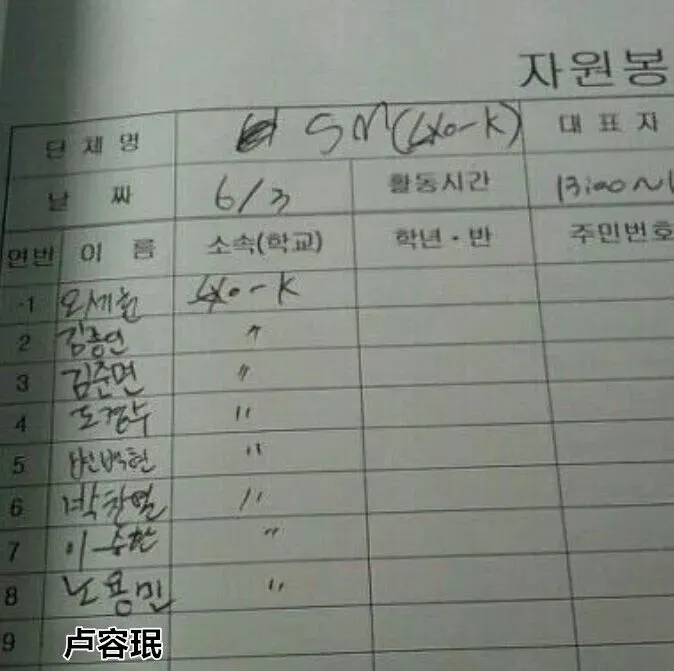 자원봉
단체명 SM(EXO-K) 대표자
날짜 6/3 활동시간 13:00~1
연번 이름 소속(학교) 학년·반 주민번호
1 오세훈 EXO-K
2 김종인 〃
3 김준면 〃
4 도경수 〃
5 변백현 〃
6 박찬열 〃
7 이승환 〃
8 노용민 〃
9 卢容珉